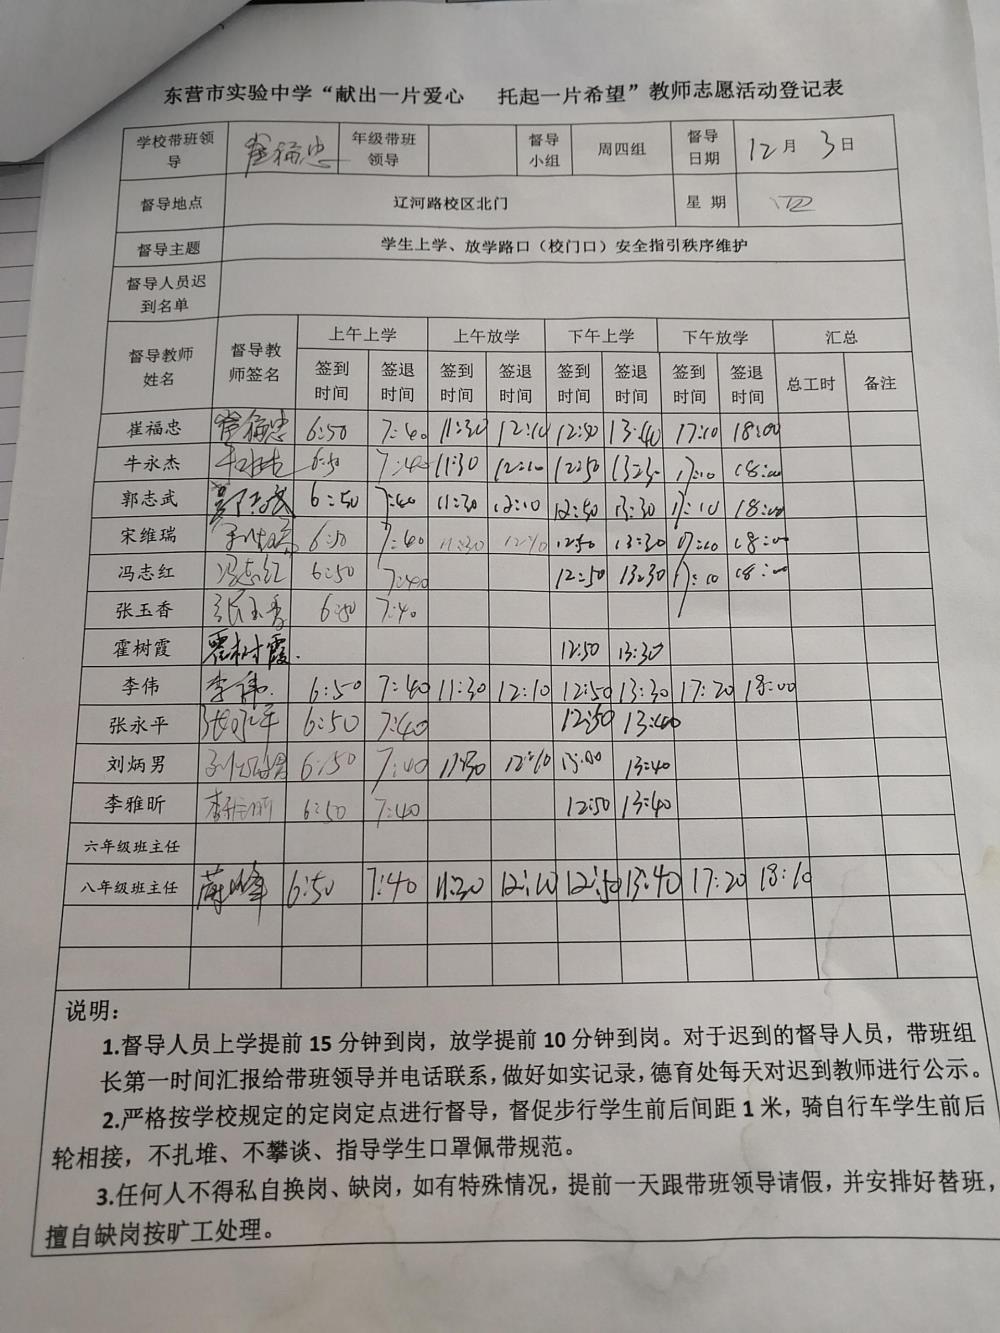 东营市实验中学“献出一片爱心 托起一片希望”教师志愿活动登记表
学校带班领导 崔福忠 年级带班领导 督导小组 周四组 督导日期 12月 3日
督导地点 辽河路校区北门 星 期 四
督导主题 学生上学、放学路口（校门口）安全指引秩序维护
督导人员迟到名单
督导教师姓名 督导教师签名 上午上学 上午放学 下午上学 下午放学 汇总
签到时间 签退时间 签到时间 签退时间 签到时间 签退时间 签到时间 签退时间 总工时 备注
崔福忠 崔福忠 6:50 7:40 11:30 12:10 12:50 13:40 17:10 18:00
牛永杰 牛永杰 6:50 7:40 11:30 12:10 12:50 13:30 17:10 18:00
郭志武 郭志武 6:50 7:40 11:30 12:10 12:50 13:30 17:10 18:00
宋维瑞 6:50 7:40 11:30 12:10 12:50 13:30 17:10 18:00
冯志红 冯志红 6:50 7:40 12:50 13:30 17:10 18:00
张玉香 张玉香 6:50 7:40
霍树霞 霍树霞 12:50 13:30
李伟 李伟 6:50 7:40 11:30 12:10 12:50 13:30 17:20 18:00
张永平 张永平 6:50 7:40 12:50 13:40
刘炳男 刘炳男 6:50 7:40 11:30 12:10 13:00 13:40
李雅昕 李雅昕 6:50 7:40 12:50 13:40
六年级班主任
八年级班主任 6:50 7:40 11:30 12:10 12:50 13:40 17:20 18:10
说明：
1.督导人员上学提前 15 分钟到岗，放学提前 10 分钟到岗。对于迟到的督导人员，带班组
长第一时间汇报给带班领导并电话联系，做好如实记录，德育处每天对迟到教师进行公示。
2.严格按学校规定的定岗定点进行督导，督促步行学生前后间距 1 米，骑自行车学生前后
轮相接，不扎堆、不攀谈、指导学生口罩佩带规范。
3.任何人不得私自换岗、缺岗，如有特殊情况，提前一天跟带班领导请假，并安排好替班，
擅自缺岗按旷工处理。